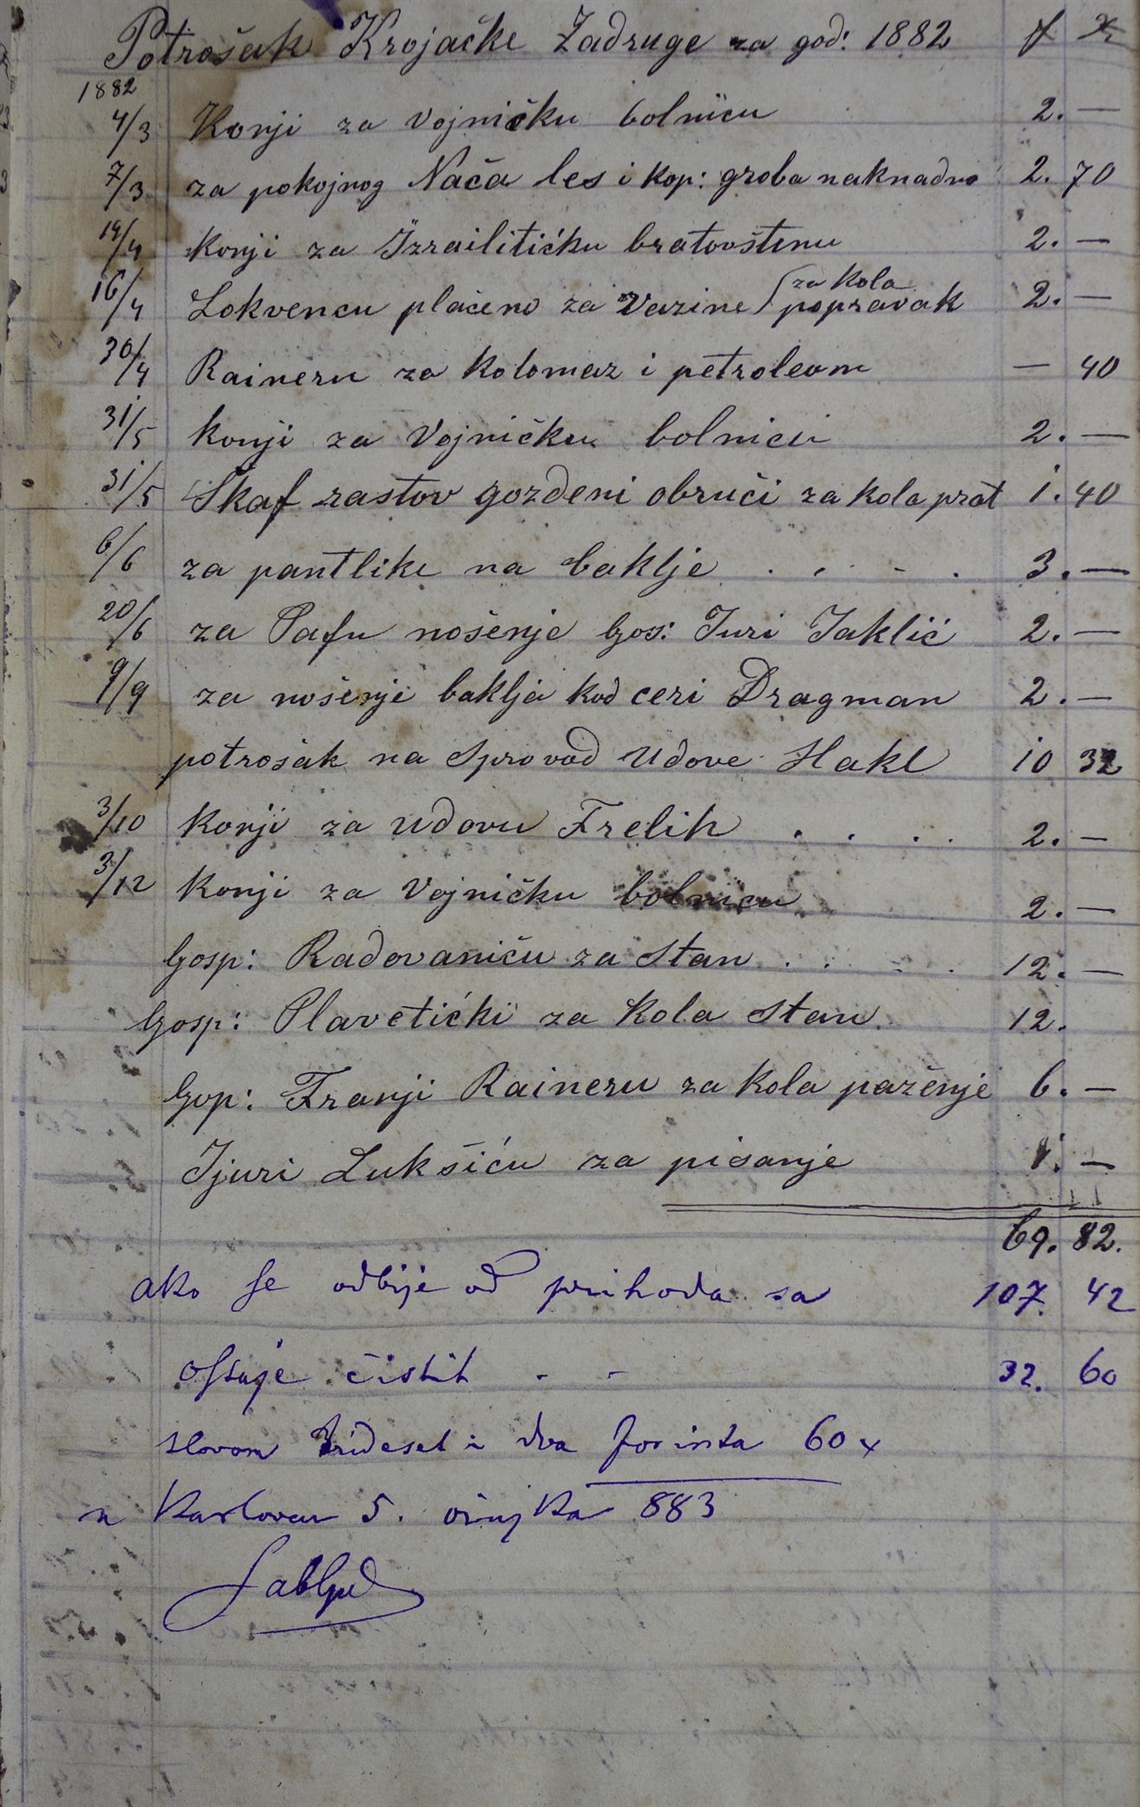 Potrošak Krojačke Zadruge za god: 1882 f x
1882
4/3 Konji za Vojničku bolnicu 2. —
7/3 za pokojnog Nača les i kop: groba naknadno 2. 70
14/4 konji za Izrailitičku bratovštinu 2. —
16/4 Lokvencu plaćeno za Vazine (za kola
popravak 2. —
30/4 Raineru za kolomaz i petroleom — 40
31/5 konji za Vojničku bolnicu 2. —
31/5 Škaf rastov gozdeni obruči za kola prat 1. 40
6/6 za pantlike na baklje . . - . 3. —
20/6 za Pafu nošenje Gos: Juri Jaklić 2. —
9/9 za nošenje baklja kod ceri Dragman 2. —
potrošak na Sprovod Udove Hakl 10 32
3/10 Konji za udovu Frelih . . . . 2. —
3/12 Konji za Vojničku bolnicu 2. —
Gosp: Radovaniću za Stan . . - . 12. —
Gosp: Plavetićki za Kola Stan 12.
Gop: Franji Raineru za Kola paženje 6. —
Gjuri Lukšiću za pisanje 8. —
69. 82.
ako se odbije od prihoda sa 107. 42
Ostaje čistih - - 32. 60
slovom trideset i dva forinta 60 x
u Karlovcu 5. ožujka 883